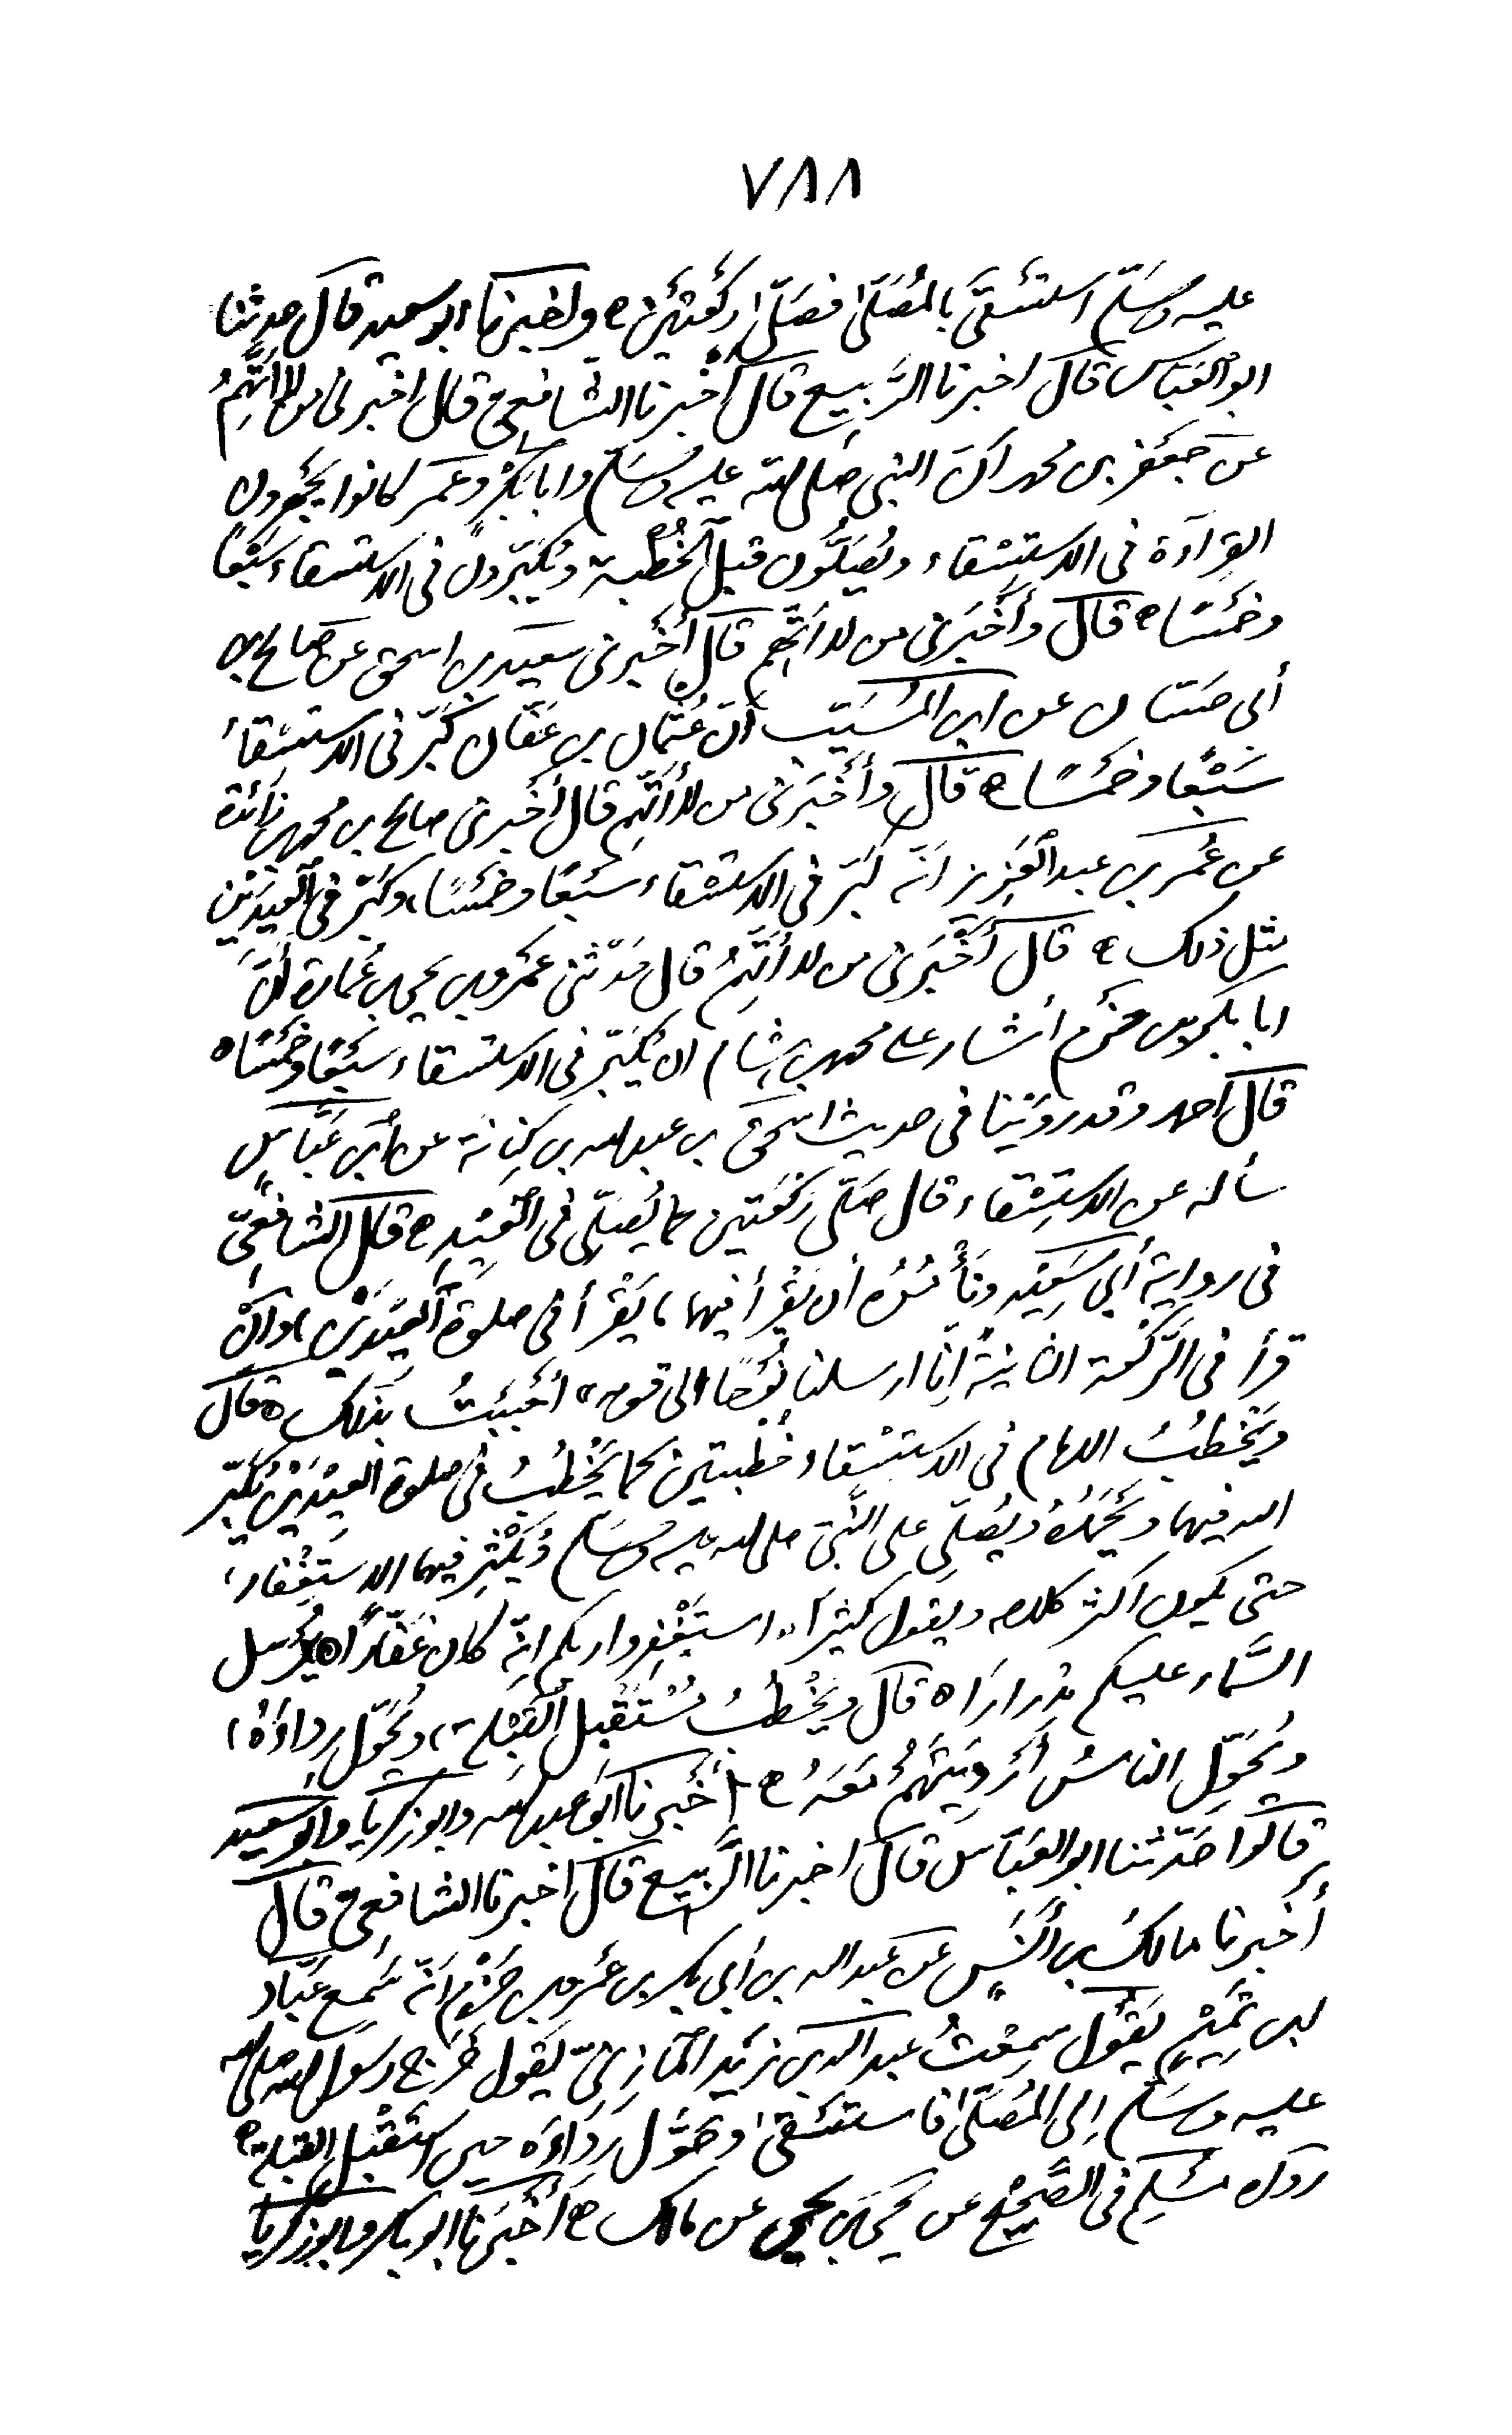 ٧٨٨
عليه وسلّم استَسْقَى بالمُصَلّىٰ فصَلّىٰ ركْعتيْن ٥ واخبرنا ابو سعيد قال حدثنا
ابو العَبّاس قال اخبرنا الرَّبيع قال أخبرنا الشافعي قال اخبرني من لا اتَّهِمُ
عن جَعْفَر بن محمد انّ النبي صلى الله عليه وسلّم وابا بَكْرٍ وعمر كانوا يَجْهَرون
القِراءة في الاستِسْقاء ويُصَلُّون قبل الخُطْبة ويُكبِّرون في الاستسقاء سَبْعًا
وخَمْسًا ٥ قال وأَخْبَرَني من لا اتَّهِم قال أخْبرني سعيد بن اسحق عن صَالح بن
أبي حسّان عن ابن المُسَيَّب أنّ عُثْمان بن عَفّان كَبّر في الاستسقاء
سَبْعًا وخَمْسًا ٥ قال وأَخْبَرَني من لا أتّهم قال أخْبرني صالح بن محمد بن زَائدة
عن عُمَر بن عبد الْعَزِيز انّه كَبّر في الاستسْقاء سَبْعًا وخَمْسًا، وكَبّر في الْعِيدَيْن
مثل ذلك ٥ قال أَخْبَرَني من لا أَتَّهِمُ قال حَدّثني عَمْرو بن يحيى بن عُمارة أَنّ
ابا بكر بن حَزْم أشار على محمد بن هشام ان يُكَبّر في الاستسقاء سَبْعًا وخَمْسًا ٥
قال أحمد وقد روَيْنا في حديث اسحق بن عبد الله بن كِنانة عن ابْن عَبَّاسٍ
سأله عن الاستِسْقاء قال صَلّى ركْعَتين كما يُصَلّي في الْعِيْدِ ٥ قال الشافعيّ
في رواية أبي سَعِيْد ونَأْمُرُه أن يَقْرأ فيهما ما يَقْرأ في صلوة الْعِيْدَيْن، وانْ
قرأ في الرَّكْعة الثانية إنّا ارسلنا نُوْحًا الى قومه أَحْبَبْتُ ذلك ٥ قال
ويَخْطبُ الامام في الاستِسْقاء خُطْبتين كما يَخْطُبُ في صلوة العِيْدَيْن يُكَبّر
الله فيهما ويَحْمَدُهُ ويُصَلّي على النَّبيّ صلى الله عليه وسَلّم ويُكْثر فيهما الاستِغْفار،
حتى يكون اكثر كلامه ويقول كثيرًا استَغْفِروا ربكم انّه كان غَفّارًا يُرسل
السَّماء عليكم مِدْرارًا ٥ قال ويَخْطبُ مُسْتَقْبل الْقِبْلة، ويُحَوّل رداءَهُ،
ويُحَوّل الناسُ أَرْوِيَتَهُمْ مَعَهُ ٥ أَخْبَرنا ابو عبد الله وابو زكريا وابو سعيد
قالوا حَدّثنا ابو العَبّاس قال اخبرنا الرَّبيع قال اخبرنا الشافعي قال
أخبرنا مالكُ بن أنَسٍ عن عَبد الله بن أبي بكر بن عمرو بن حَزْم انّه سَمِعَ عَبّاد
بن تَمِيْمٍ يَقُوْل سمِعْتُ عبد الله بن زيْد المازنيّ يَقول خَرَج رسول الله صلى الله
عليه وسَلّم إلى المُصَلّى فاستَسْقىٰ وحَوَّل رداءَه حين اسْتَقْبل القبلة ٥
رواه مُسْلِم في الصَّحِيْح عن يحيى بن يحيى عن مالك ٥ أخْبَرنا ابو بكر وابو زكريا